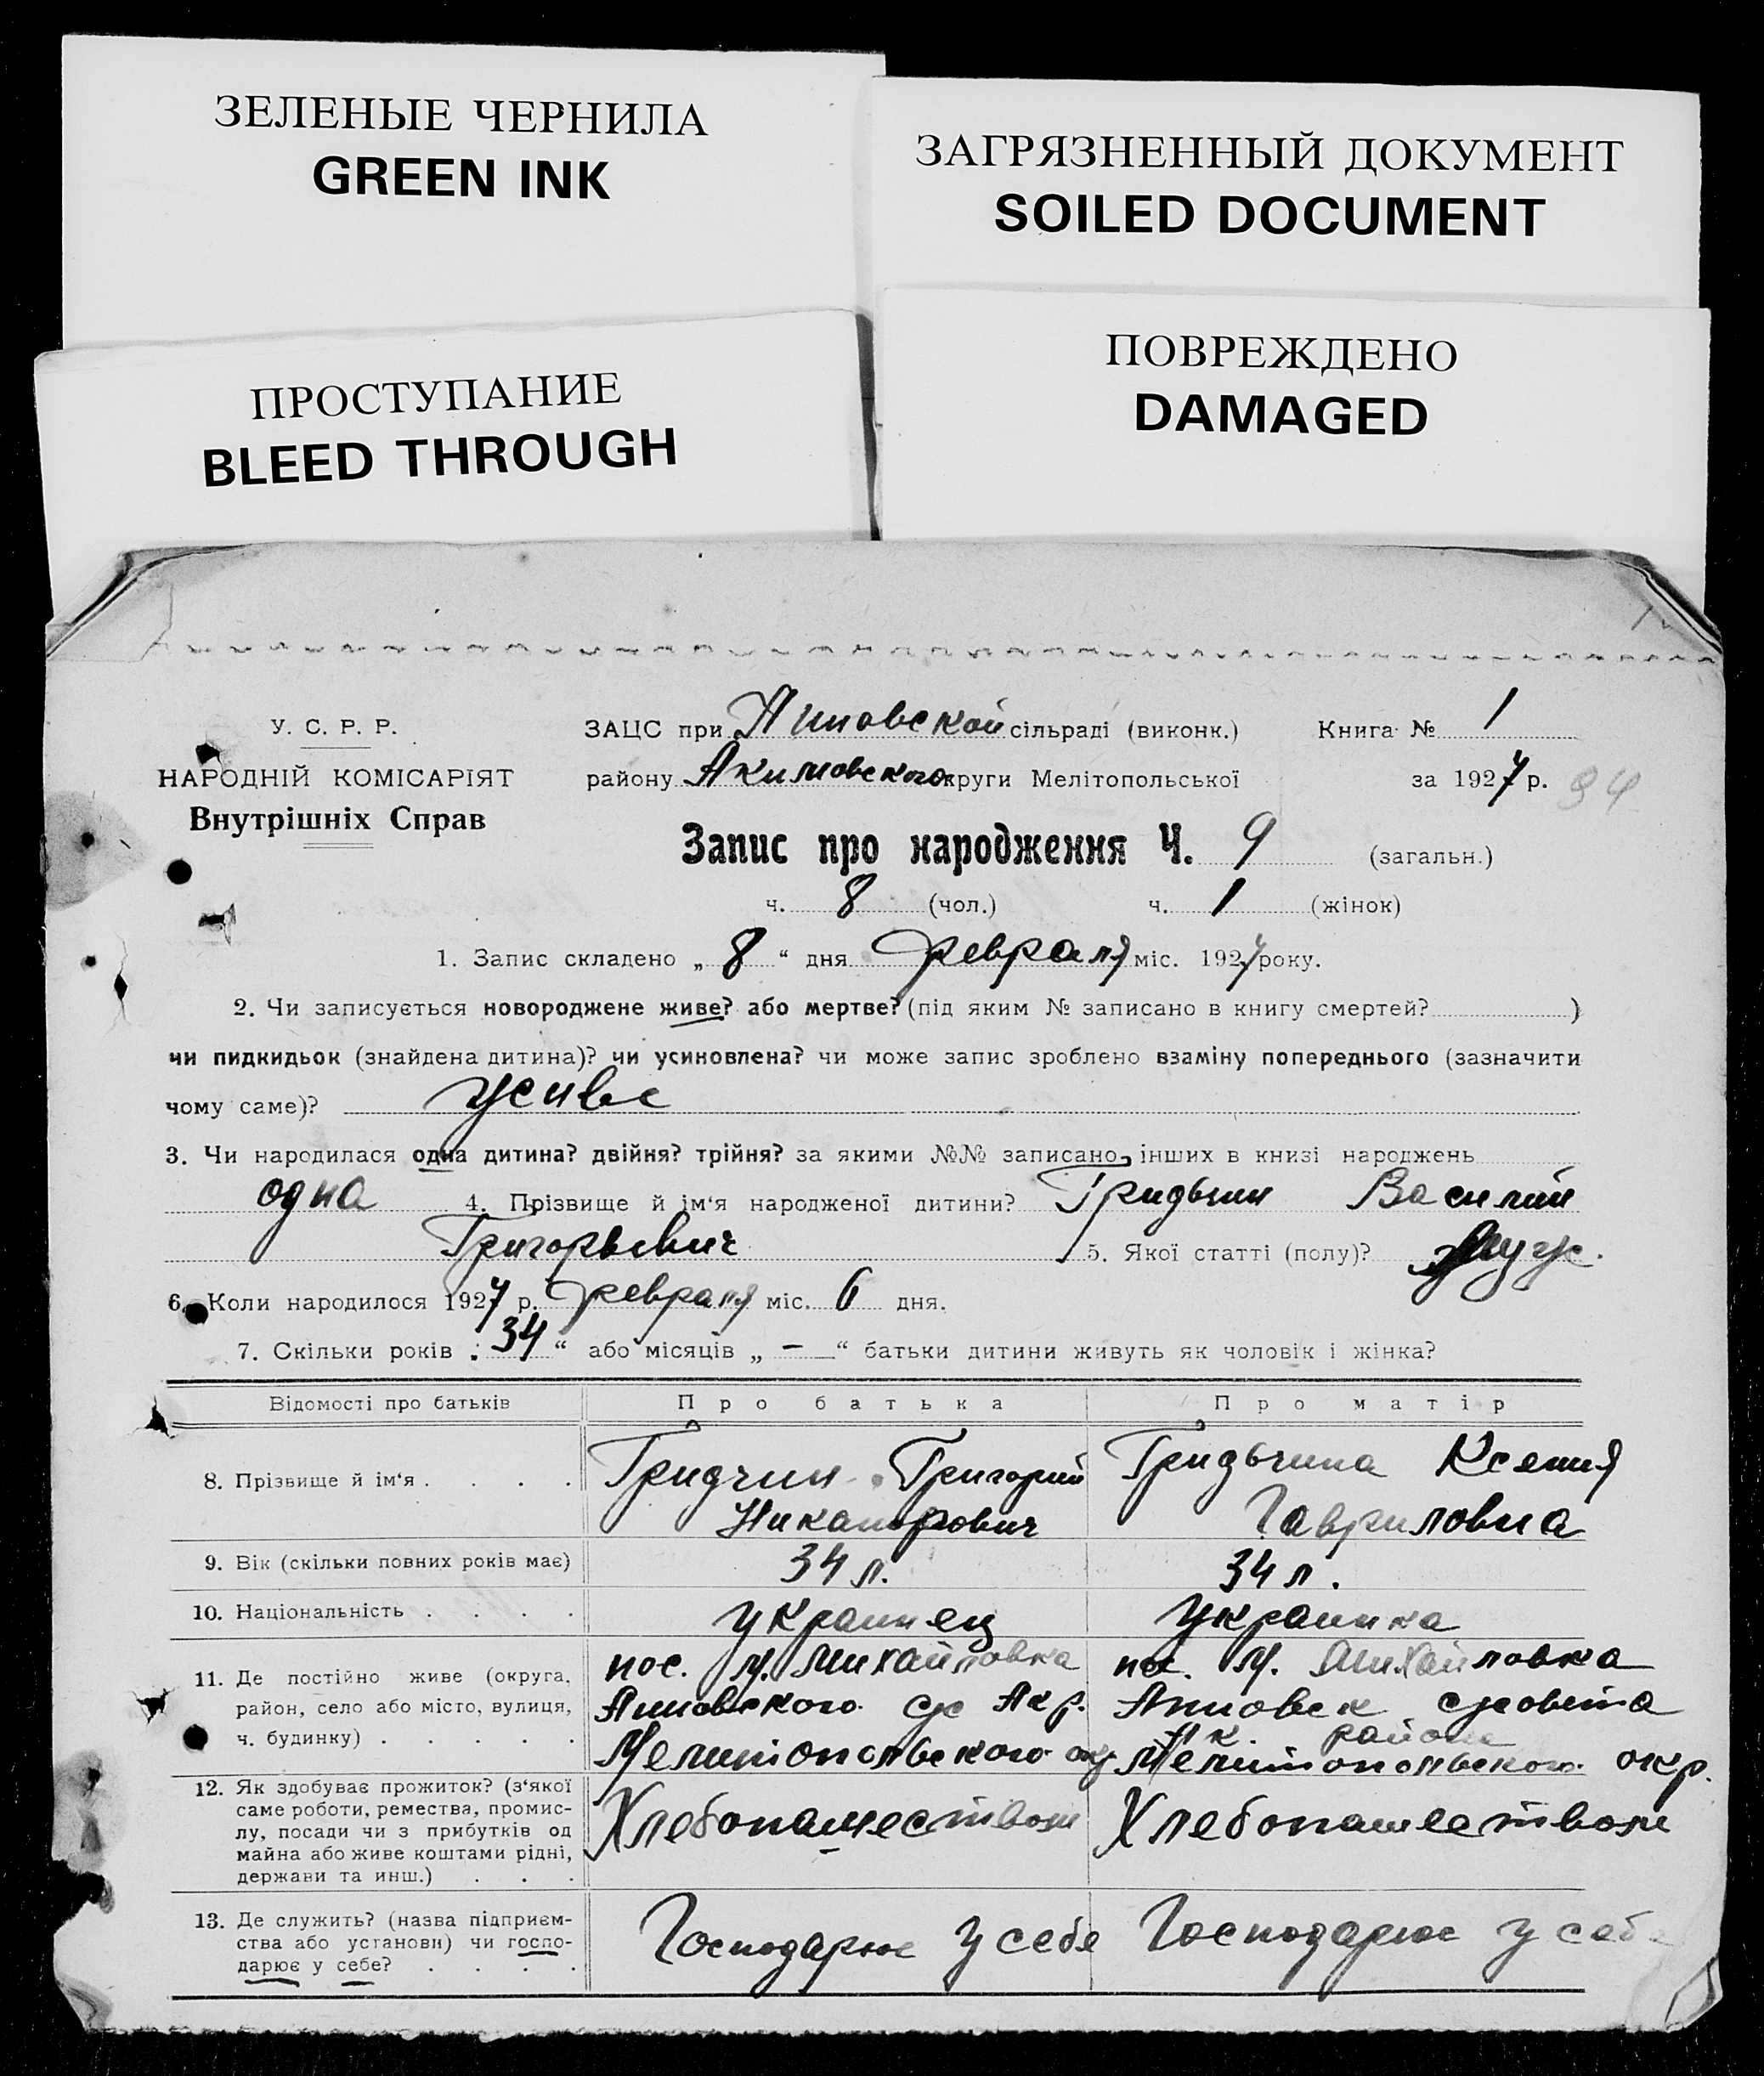 ЗЕЛЕНЫЕ ЧЕРНИЛА
GREEN INK
ЗАГРЯЗНЕННЫЙ ДОКУМЕНТ
SOILED DOCUMENT
ПРОСТУПАНИЕ
BLEED THROUGH
ПОВРЕЖДЕНО
DAMAGED
У. С. Р. Р.
НАРОДНІЙ КОМІСАРІЯТ
Внутрішніх Справ
ЗАЦС при Анновской сільраді (виконк.) Книга № 1
району Акимовского округи Мелітопольської за 1927 р. 94
Запис про народження Ч. 9 (загальн.)
ч. 8 (чол.) ч. 1 (жінок)
1. Запис складено „ 8 “ дня февраля міс. 1927 року.
2. Чи записується новороджене живе? або мертве? (під яким № записано в книгу смертей? )
чи пидкидьок (знайдена дитина)? чи усиновлена? чи може запис зроблено взаміну попереднього (зазначити
чому саме)? живе
3. Чи народилася одна дитина? двійня? трійня? за якими №№ записано інших в книзі народжень
одна 4. Прізвище й ім‘я народженої дитини? Гридьчин Василий
Григорьевич 5. Якої статті (полу)? муж.
6. Коли народилося 1927 р. февраля міс. 6 дня.
7. Скільки років „ 34 “ або місяців „ — “ батьки дитини живуть як чоловік і жінка?
Відомості про батьків Про батька Про матір
8. Прізвище й ім‘я . . . . Гридчин Григорий Никанорович
Гридьчина Ксения Гавриловна
9. Вік (скільки повних років має) 34 л. 34 л.
10. Національність . . . . украинец украинка
11. Де постійно живе (округа,
район, село або місто, вулиця,
ч. будинку) . . . . .
пос. М. Михайловка
Анновского с/с Акр.
Мелитопольского окр
пос. М. Михайловка
Анновск с/совета
Ак. района
Мелитопольского окр.
12. Як здобуває прожиток? (з‘якої
саме роботи, ремества, промис-
лу, посади чи з прибутків од
майна або живе коштами рідні,
держави та инш.) . . .
Хлебопашеством
Хлебопашеством
13. Де служить? (назва підприєм-
ства або установи) чи госпо-
дарює у себе? . . . .
Господарює у себе
Господарює у себе